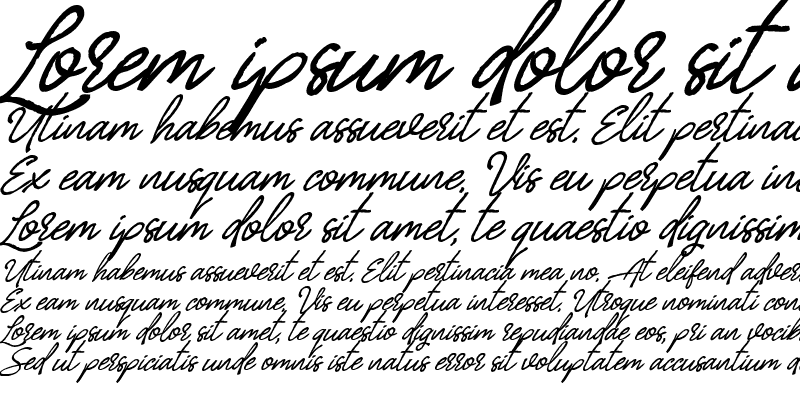 Lorem ipsum dolor sit
Utinam habemus assueverit et est. Elit pertinaci
Ex eam nusquam commune. Vis eu perpetua in
Lorem ipsum dolor sit amet, te quaestio dignissim
Utinam habemus assueverit et est. Elit pertinacia mea no. At eleifend adver
Ex eam nusquam commune. Vis eu perpetua interesset. Utroque nominati con
Lorem ipsum dolor sit amet, te quaestio dignissim repudiandae eos, pri an vocib
Sed ut perspiciatis unde omnis iste natus error sit voluptatem accusantium d